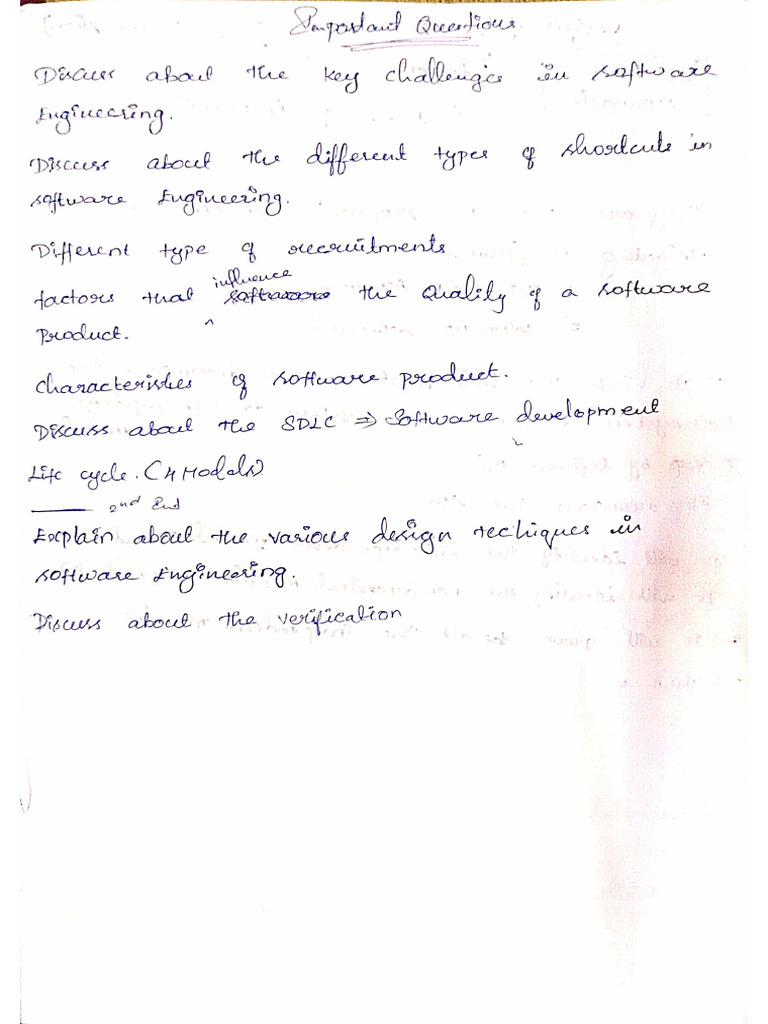 Important Questions
Discuss about the key challenges in software
Engineering.
Discuss about the different types of shortcuts in
software Engineering.
Different type of recruitments
influence
factors that the Quality of a software
Product.
characteristics of software product.
Discuss about the SDLC ⇒ Software development
Life cycle. (4 Models)
2nd End
Explain about the various design techiques in
software Engineering.
Discuss about the verification